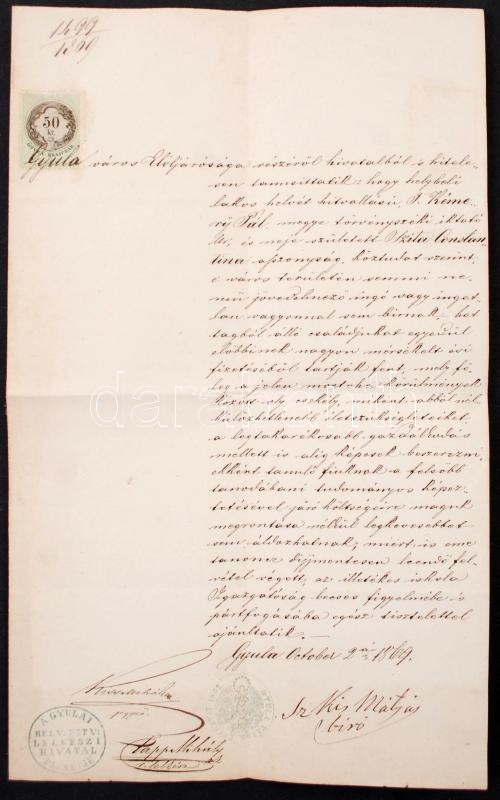 1499
1869
50
kr.
Gyula város Elöljárósága részéről hivatalból s hitele-
sen tanusíttatik: hogy helybeli
lakos helvét hitvallású, T. Kéme-
ry Pál, megye törvényszéki iktató
Úr, és neje született Szita Constan-
tina aszonyság, köztudat szerint
e város területén semmi ne-
mű jövedelmező ingó vagy ingat-
lan vagyonnal sem birnak, hat
tagból álló családjukat egyedül
előbbinek nagyon mérsékelt évi
fizetéséből tartják fent, mely fő-
leg a jelen most-
oly csekély, miként abból nél-
külözhetlenebb életszükségleteiket,
a legtakarékosabb gazdálkodás
mellett is alig képesek beszerezni,
ekként tanuló fiuknak a felsőbb
tanodábani tudományos képez-
tetésével járó költségeire maguk
megrontása nélkül legkevesebbet
sem áldozhatnak; miért is eme
tanoncz díjmentesen leendő fel-
vétel végett, az illetékes iskola
Igazgatóság becses figyelmébe s
pártfogásába egész tisztelettel
ajánltatik.—
Gyula October 2án 1869.
Sz Kis Mátyás
biró
Papp Mihály
A GYULAI
HELV. HITV.
LELKÉSZI
HIVATAL
darabanth